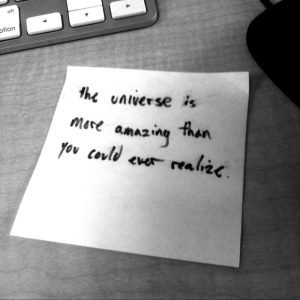 alt
option
the universe is
more amazing than
you could ever realize.